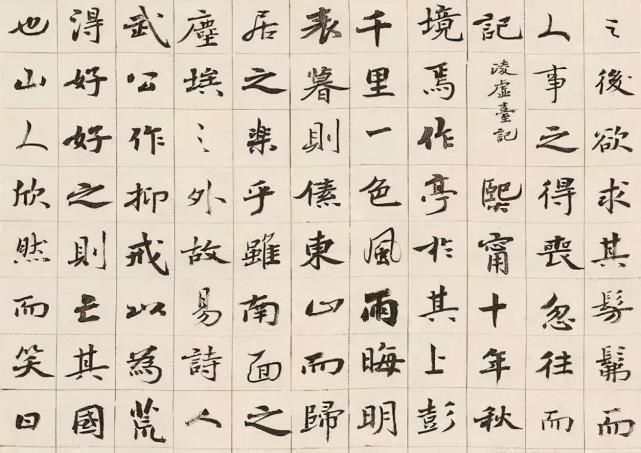 之後欲求其髣髴而
人事之得喪忽往而
記凌虛臺記熙甯十年秋
境焉作亭於其上彭
千里一色風雨晦明
表暮則傃東山而歸
居之楽乎雖南面之
塵埃之外故易詩人
武公作抑戒以為荒
得好好之則亡其國
也山人欣然而笑曰